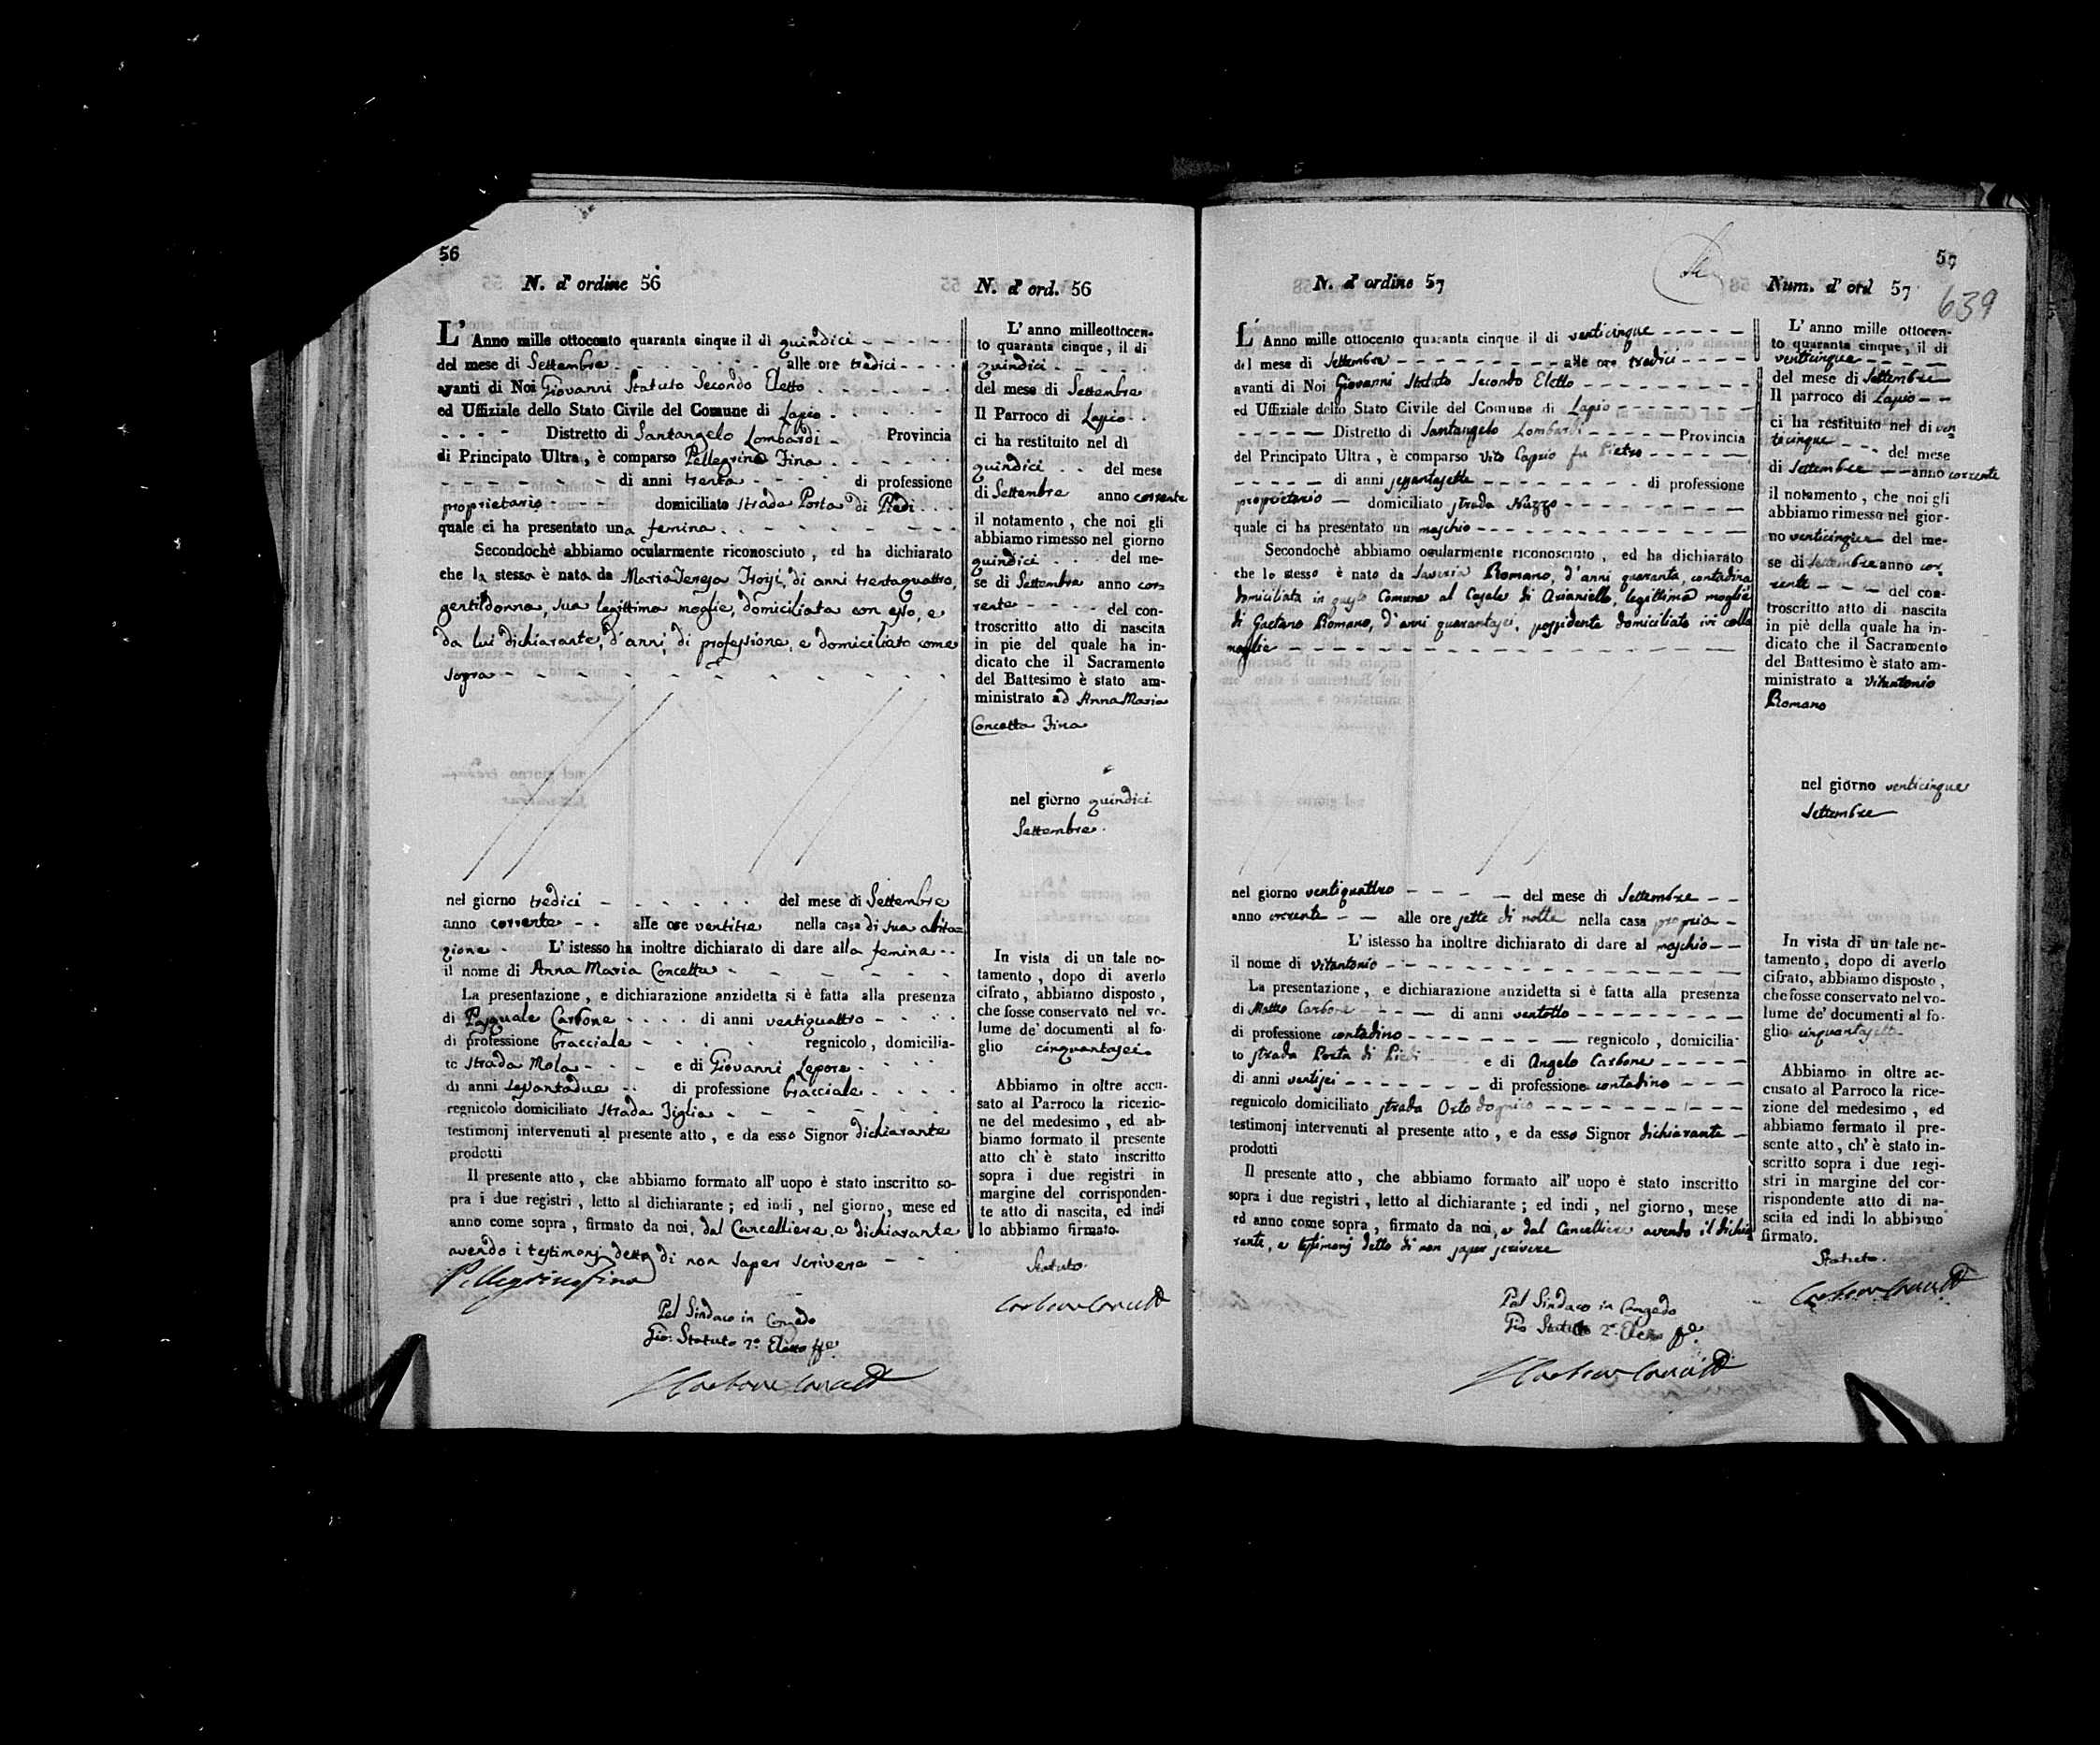 56
N. d' ordine 56
L' Anno mille ottocento quaranta cinque il di quindici
del mese di Settembre alle ore tredici
avanti di Noi Giovanni Statuto Secondo Eletto
ed Uffiziale dello Stato Civile del Comune di Lapio
Distretto di Santangelo Lombardi Provincia
di Principato Ultra, è comparso Pellegrino Fina
di anni trenta di professione
proprietario domiciliato Strada Porta di Piedi
quale ci ha presentato una femina
Secondochè abbiamo ocularmente riconosciuto, ed ha dichiarato
che la stessa è nata da Maria Teresa Troisi, di anni trentaquattro,
gentildonna, sua legittima moglie, domiciliata con esso, e
da lui dichiarante, d'anni, di professione, e domiciliato come
sopra
nel giorno tredici del mese di Settembre
anno corrente alle ore ventitre nella casa di sua abita=
zione L' istesso ha inoltre dichiarato di dare alla femina
il nome di Anna Maria Concetta
La presentazione, e dichiarazione anzidetta si è fatta alla presenza
di Pasquale Carbone di anni ventiquattro
di professione bracciale regnicolo, domicilia-
to Strada Mola e di Giovanni Lepore
di anni sessantadue di professione bracciale
regnicolo domiciliato Strada Figlia
testimonj intervenuti al presente atto, e da esso Signor dichiarante
prodotti
Il presente atto, che abbiamo formato all' uopo è stato inscritto so-
pra i due registri, letto al dichiarante; ed indi, nel giorno, mese ed
anno come sopra, firmato da noi, dal Cancelliere, e dichiarante
avendo i testimonj detto di non saper scrivere
Pellegrino Fina
Pel Sindaco in Congedo
Gio: Statuto 2º Eletto ffe
N. d' ord. 56
L' anno milleottocen-
to quaranta cinque, il di
quindici
del mese di Settembre
Il Parroco di Lapio
ci ha restituito nel dì
quindici del mese
di Settembre anno corrente
il notamento, che noi gli
abbiamo rimesso nel giorno
quindici del me-
se di Settembre anno cor=
rente del con-
troscritto atto di nascita
in pie del quale ha in-
dicato che il Sacramento
del Battesimo è stato am-
ministrato ad Anna Maria
Concetta Fina
nel giorno quindici
Settembre
In vista di un tale no-
tamento, dopo di averlo
cifrato, abbiamo disposto,
che fosse conservato nel vo-
lume de' documenti al fo-
glio cinquantasei
Abbiamo in oltre accu-
sato al Parroco la ricezio-
ne del medesimo, ed ab-
biamo formato il presente
atto ch' è stato inscritto
sopra i due registri in
margine del corrisponden-
te atto di nascita, ed indi
lo abbiamo firmato.
Statuto
57
639
N. d' ordine 57
L' Anno mille ottocento quaranta cinque il di venticinque
del mese di Settembre alle ore tredici
avanti di Noi Giovanni Statuto Secondo Eletto
ed Uffiziale dello Stato Civile del Comune di Lapio
Distretto di Santangelo Lombardi Provincia
del Principato Ultra, è comparso Vito Caprio fu Pietro
di anni sessantasette di professione
proprietario domiciliato strada Nuzzo
quale ci ha presentato un maschio
Secondochè abbiamo ocularmente riconosciuto, ed ha dichiarato
che lo stesso è nato da Saveria Romano, d'anni quaranta, contadina
domiciliata in questo Comune al Casale di Arianiello, legittima moglie
di Gaetano Romano, d'anni quarantasei, possidente domiciliato ivi colla
moglie
nel giorno ventiquattro del mese di Settembre
anno corrente alle ore sette di notte nella casa propria
L' istesso ha inoltre dichiarato di dare al maschio
il nome di Vitantonio
La presentazione, e dichiarazione anzidetta si è fatta alla presenza
di Matteo Carbone di anni ventotto
di professione contadino regnicolo, domicilia-
to strada Porta di Piedi e di Angelo Carbone
di anni ventisei di professione contadino
regnicolo domiciliato strada Orto
testimonj intervenuti al presente atto, e da esso Signor dichiarante
prodotti
Il presente atto, che abbiamo formato all' uopo è stato inscritto
sopra i due registri, letto al dichiarante; ed indi, nel giorno, mese
ed anno come sopra, firmato da noi, e dal Cancelliere avendo il dichia
rante, e testimonj detto di non saper scrivere
Pel Sindaco in Congedo
Gio Statuto 2º Eletto ffe
Num. d' ord 57
L' anno mille ottocen-
to quaranta cinque, il di
venticinque
del mese di Settembre
Il parroco di Lapio
ci ha restituito nel di ven
ticinque del mese
di Settembre anno corrente
il notamento, che noi gli
abbiamo rimesso nel gior-
no venticinque del me-
se di Settembre anno cor
rente del con-
troscritto atto di nascita
in piè della quale ha in-
dicato che il Sacramento
del Battesimo è stato am-
ministrato a Vitantonio
Romano
nel giorno venticinque
Settembre
In vista di un tale no-
tamento, dopo di averlo
cifrato, abbiamo disposto,
che fosse conservato nel vo-
lume de' documenti al fo-
glio cinquantasette
Abbiamo in oltre ac-
cusato al Parroco la rice-
zione del medesimo, ed
abbiamo formato il pre-
sente atto, ch' è stato in-
scritto sopra i due regi-
stri in margine del cor-
rispondente atto di na-
scita ed indi lo abbiamo
firmato.
Statuto